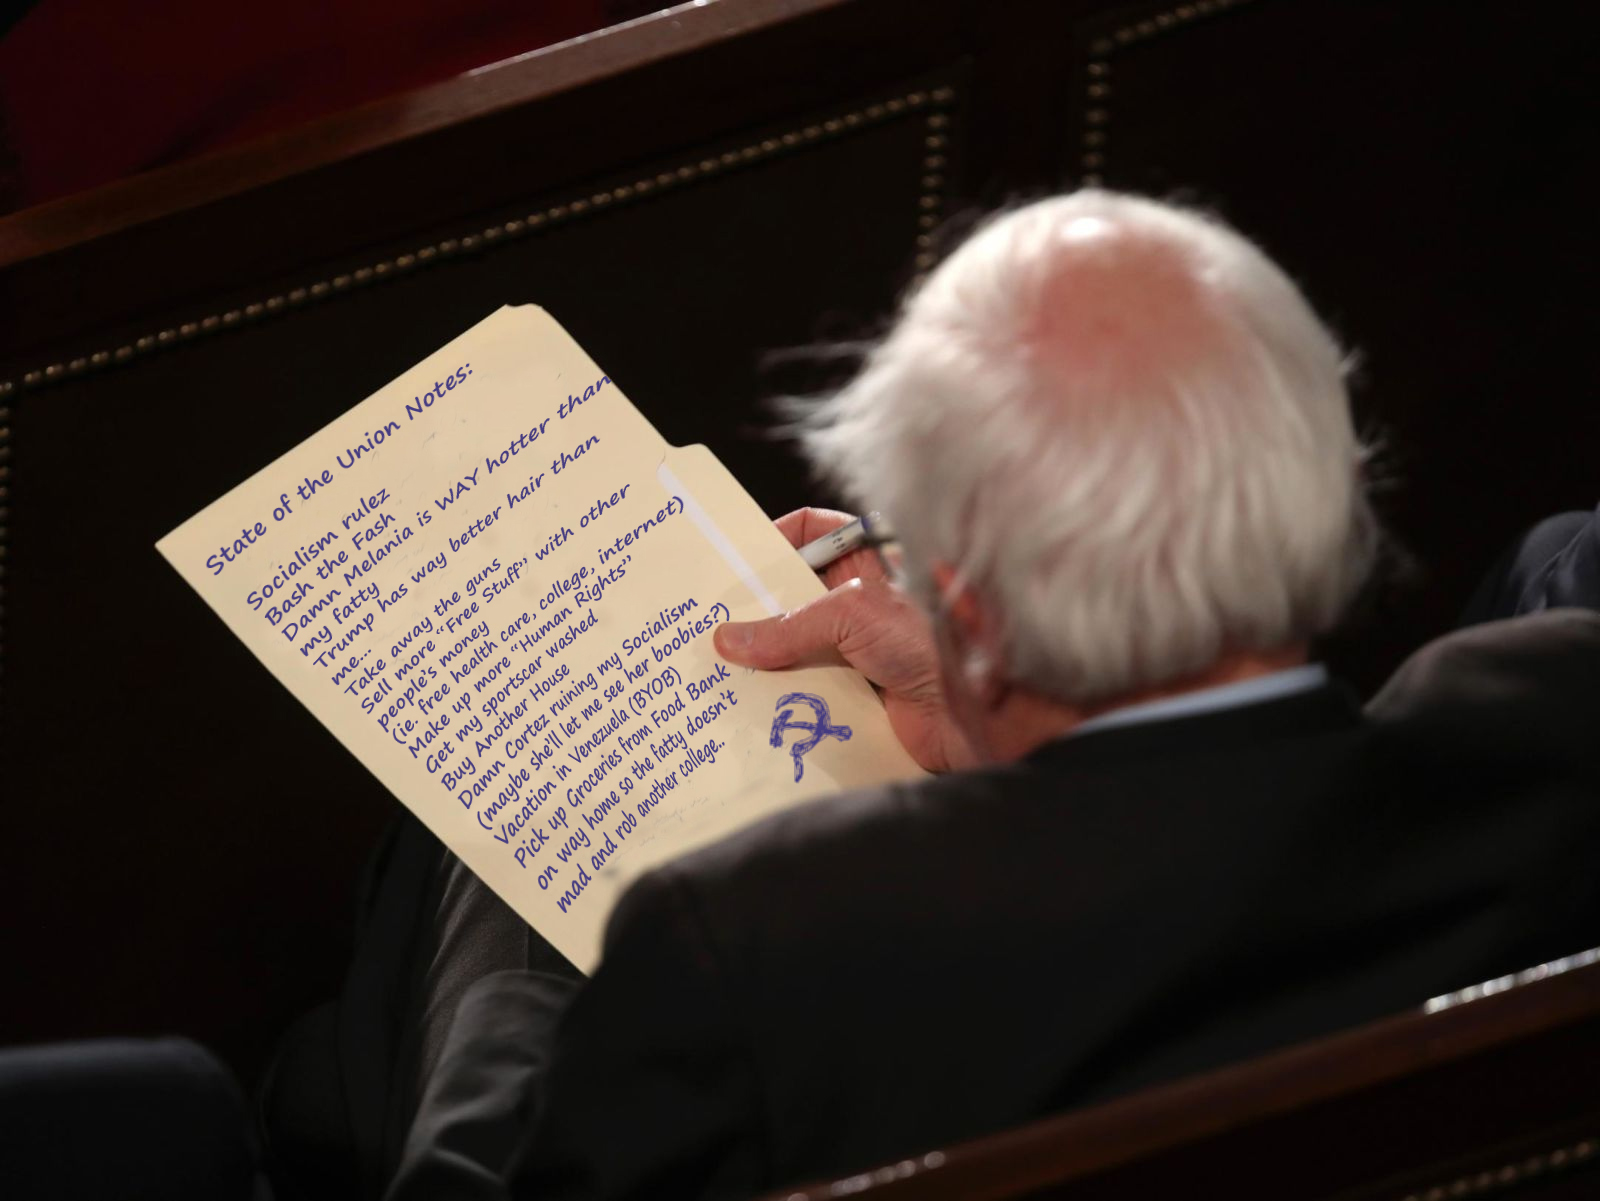 State of the Union Notes:
Socialism rulez
Bash the Fash
Damn Melania is WAY hotter than
my fatty
Trump has way better hair than
me...
Take away the guns
Sell more "Free Stuff" with other
people's money
(ie. free health care, college, internet)
Make up more "Human Rights"
Get my sportscar washed
Buy Another House
Damn Cortez ruining my Socialism
(maybe she'll let me see her boobies?)
Vacation in Venezuela (BYOB)
Pick up Groceries from Food Bank
on way home so the fatty doesn't
mad and rob another college..